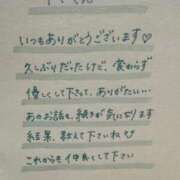 いつもありがとうございます♡
久しぶりだったけど、変わらず
優しくして下って、ありがたい…
あのお話も、続きが気になります
結果、教えて下さいね
これからも仲良くして下さい